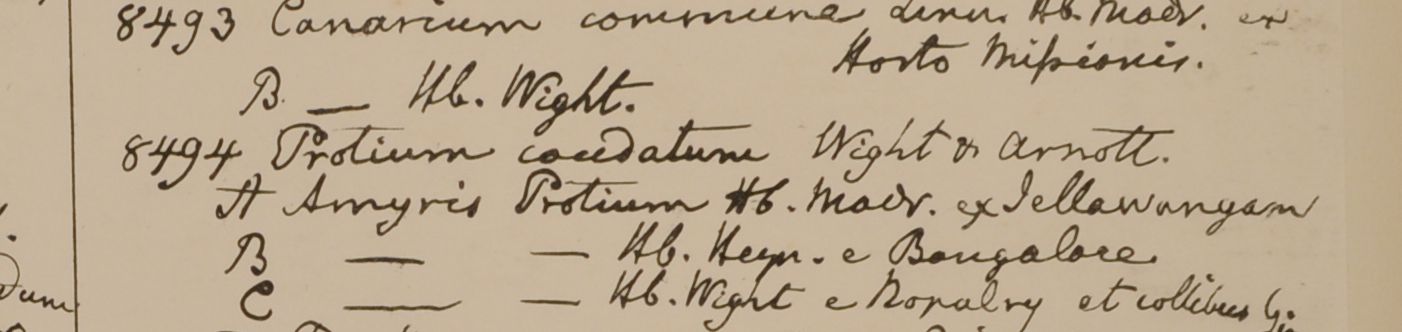 8493 Canarium commune Linn. Hb. Madr. ex
Horto Missionis.
B. — Hb. Wight.
8494 Protium caudatum Wight & Arnott.
A Amyris Protium Hb. Madr. ex
B — — Hb. Heyn. e Bangalore
C — — Hb. Wight e et collibus